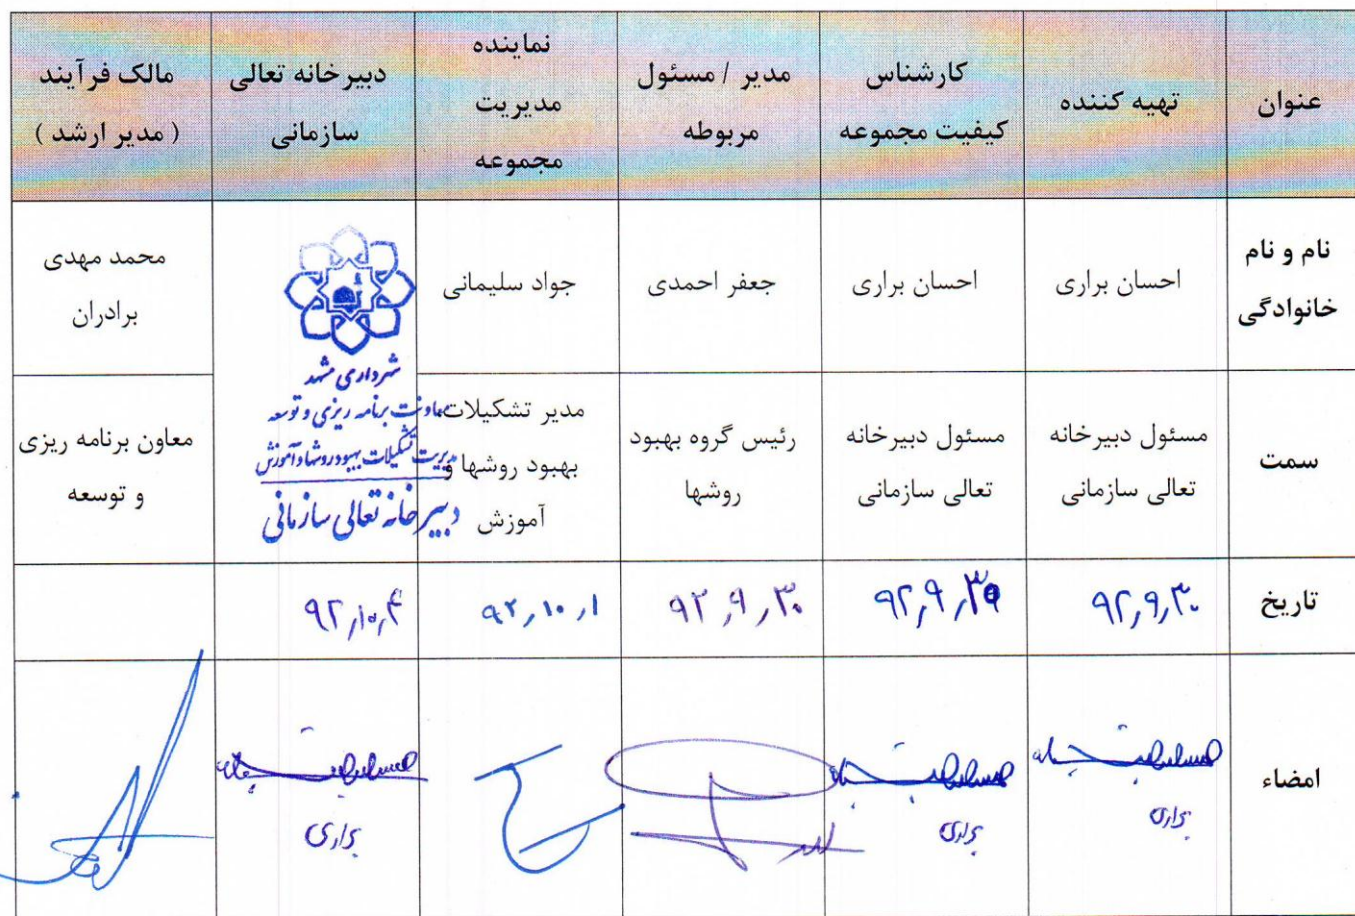 عنوان
تهیه کننده
کارشناس
کیفیت مجموعه
مدیر / مسئول
مربوطه
نماینده
مدیریت
مجموعه
دبیرخانه تعالی
سازمانی
مالک فرآیند
( مدیر ارشد )
نام و نام
خانوادگی
احسان براری
احسان براری
جعفر احمدی
جواد سلیمانی
شهرداری مشهد
معاونت برنامه ریزی و توسعه
مدیریت تشکیلات بهبود روشها و آموزش
دبیرخانه تعالی سازمانی
محمد مهدی
برادران
سمت
مسئول دبیرخانه
تعالی سازمانی
مسئول دبیرخانه
تعالی سازمانی
رئیس گروه بهبود
روشها
مدیر تشکیلات،
بهبود روشها و
آموزش
معاون برنامه ریزی
و توسعه
تاریخ
۹۲٫۹٫۳۰
۹۲٫۹٫۳۰
۹۲٫۹٫۳۰
۹۲٫۱۰٫۱
۹۲٫۱۰٫۴
امضاء
براری
براری
براری